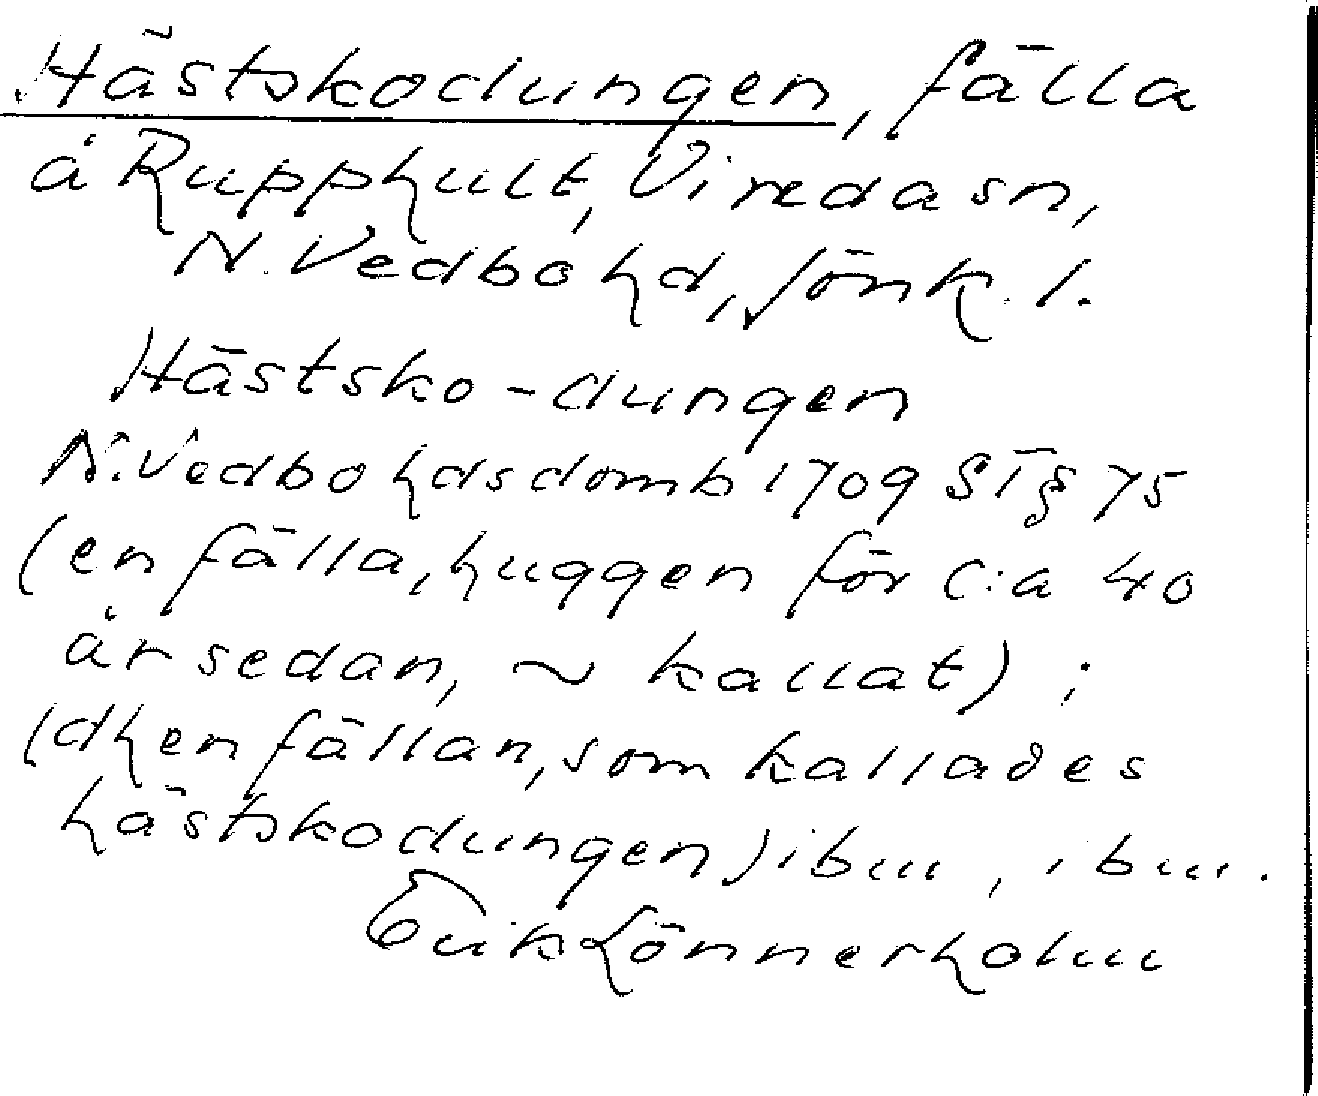 Hästskodungen, fälla
å Rupphult, Viredasn,
N. Vedbo hd, Jönk. l.
Hästsko-dungen
N. Vedbo hds domb 1709 ST § 75
(en fälla, huggen för c:a 40
år sedan, ~ kallat) ;
(dhen fällan, som kallades
hästskodungen) ibm, ibm.
Erik Lönnerholm